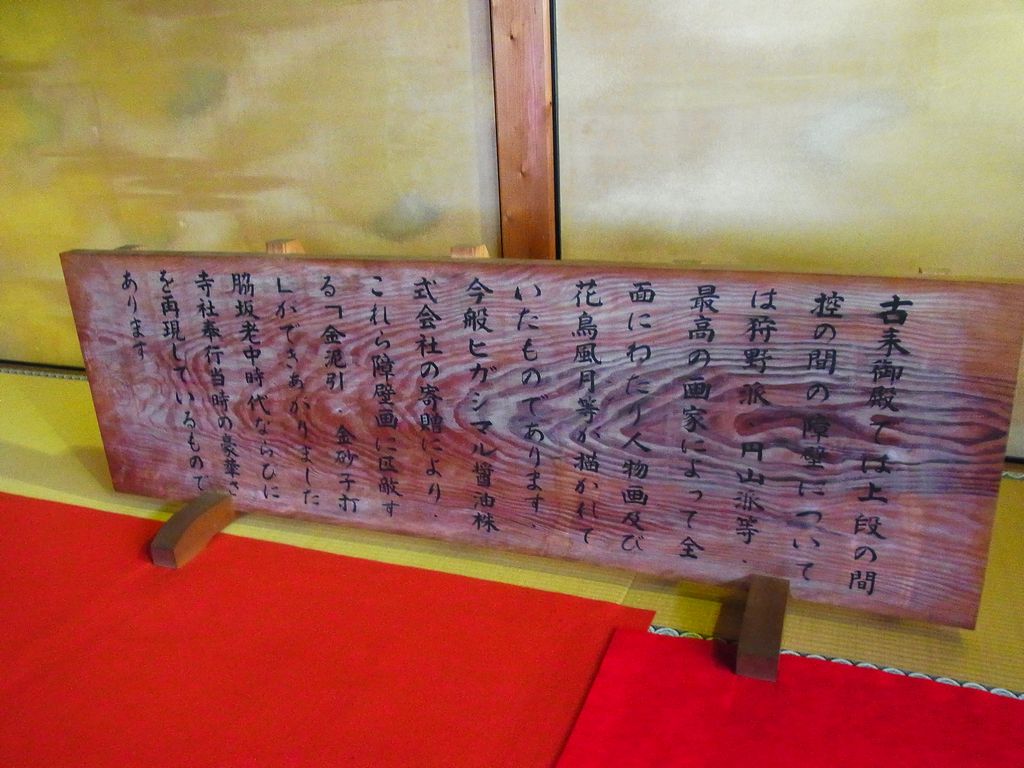 古来御殿では上段の間
控の間の障壁について
は狩野派、円山派等、
最高の画家によって全
面にわたり人物画及び
花鳥風月等が描かれて
いたものであります、
今般ヒガシマル醤油株
式会社の寄贈により、
これら障壁画に匹敵す
る「金泥引、金砂子打
」ができあがりました
脇坂老中時代ならびに
寺社奉行当時の豪華さ
を再現しているもので
あります